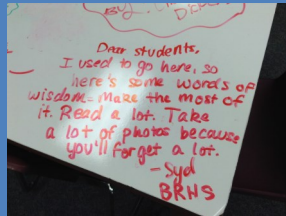 BY:
Dear students,
I used to go here, so
here's some words of
wisdom- Make the most of
it. Read a lot. Take
a lot of photos because
you'll forget a lot.
-Syd
BRHS